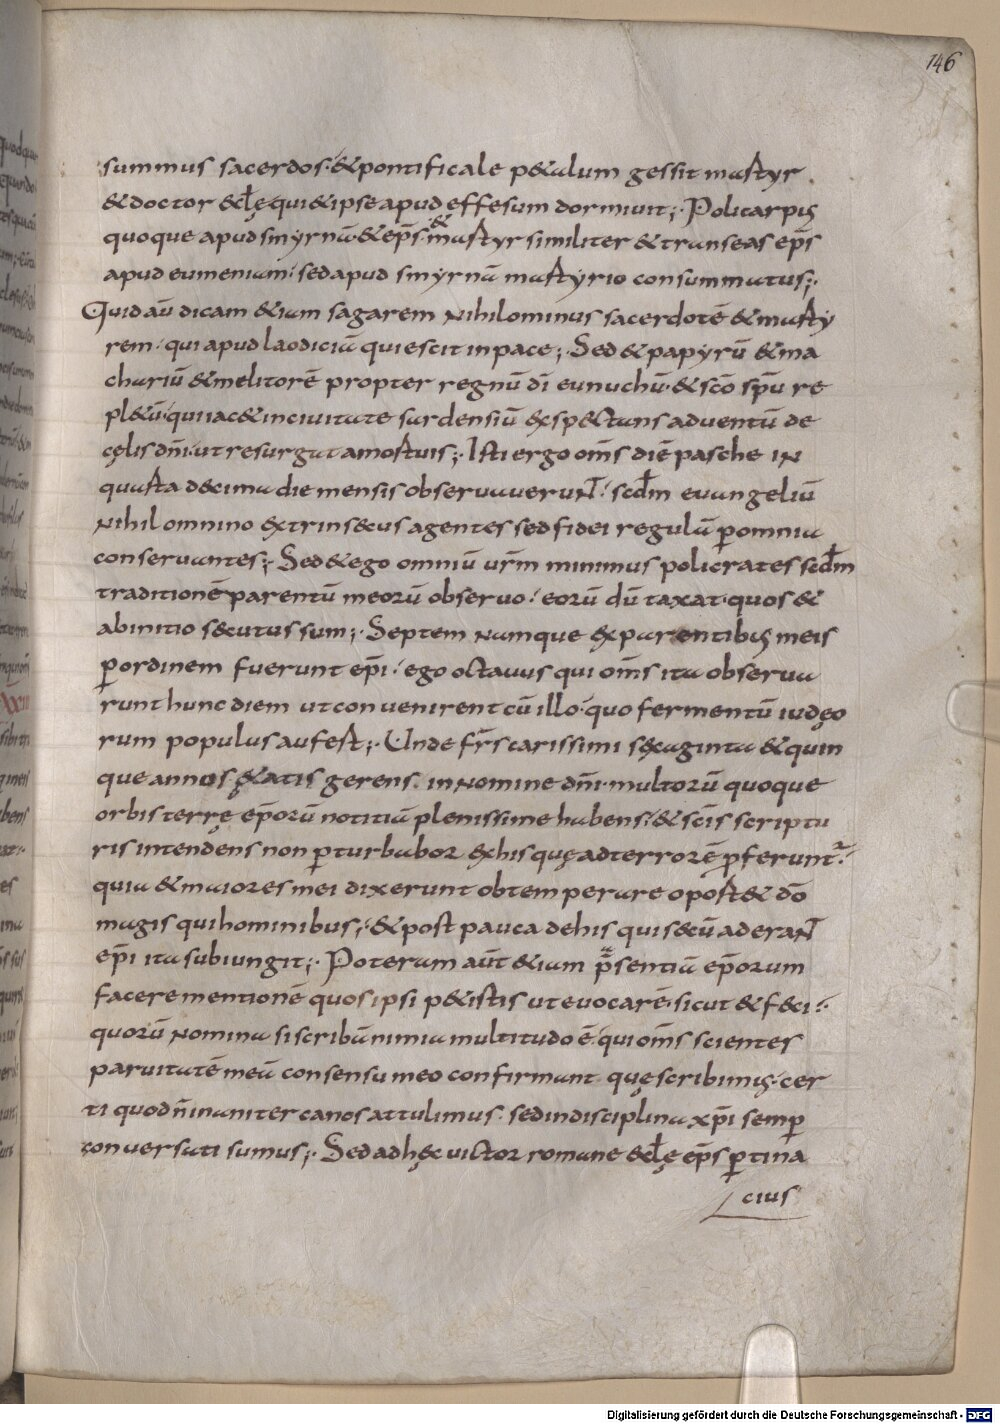 146
summus sacerdos· &pontificale p&alum gessit martyr
&doctor &cl̄ę qui&ipse apud effesum dormiuit;· Policarpus
quoque apud smyrnā·&ep̄s·&martyr similiter &transeas ep̄s
apud eumeniam· sed apud smyrnā martyrio consummatus;·
Quid aū dicam &iam sagarem nihilominus sacerdotē &marty
rem· qui apud laodiciā quiescit in pace;· Sed &papyrū &ma
chariū &melitorē propter regnū dī eunuchū·&sc̄o sp̄u re
pl&ū·qui iac& in ciuitate sardensiū exsp&tans aduentū de
cęlis dn̄i·ut resurgat a mortuis;· Isti ergo om̄s diē pasche in
quarta decima die mensis obseruauerunt· scd̄m euangeliū
nihil omnino extrinsecus agentes sed fidei regulā p̄ omnia
conseruantes;· Sed &ego omniū ur̄m minimus policrates scd̄m
traditionē parentū meorū obseruo· eorū dū taxat·quos &
ab initio secutus sum;· Septem namque ex parentibus meis
p̄ ordinem fuerunt ep̄i· ego octauus qui om̄s ita obserua
runt hunc diem ut conuenirent cū illo·quo fermentū iudęo
rum populus aufert;· Unde fr̄s carissimi sexaginta &quin
que annos &atis gerens in nomine dn̄i·multorū quoque
orbis terrę ep̄orū notitiā plenissime habens·&sc̄is scriptu
ris intendens non p̄turbabor ex his quę ad terrorē p̄feruntr·
quia &maiores mei dixerunt obtemperare oport& dō
magis qui hominibus;·&post pauca de his qui secū aderant
ep̄i ita subiungit;· Poteram aūt &iam p̄sentiā ep̄orum
facere mentionē quos ipsi p&istis ut euocarē·sicut &feci·
quorū nomina si scribā nimia multitudo ē·qui om̄s scientes
paruitatē meā consensu meo confirmant quę scribimus·cer
ti quod n̄ inaniter canos attulimus· sed in disciplina xp̄i semp̄
conuersati sumus;· Sed ad hęc uictor romane &cl̄ę ep̄s p̄tina
cius
Digitalisierung gefördert durch die Deutsche Forschungsgemeinschaft - DFG